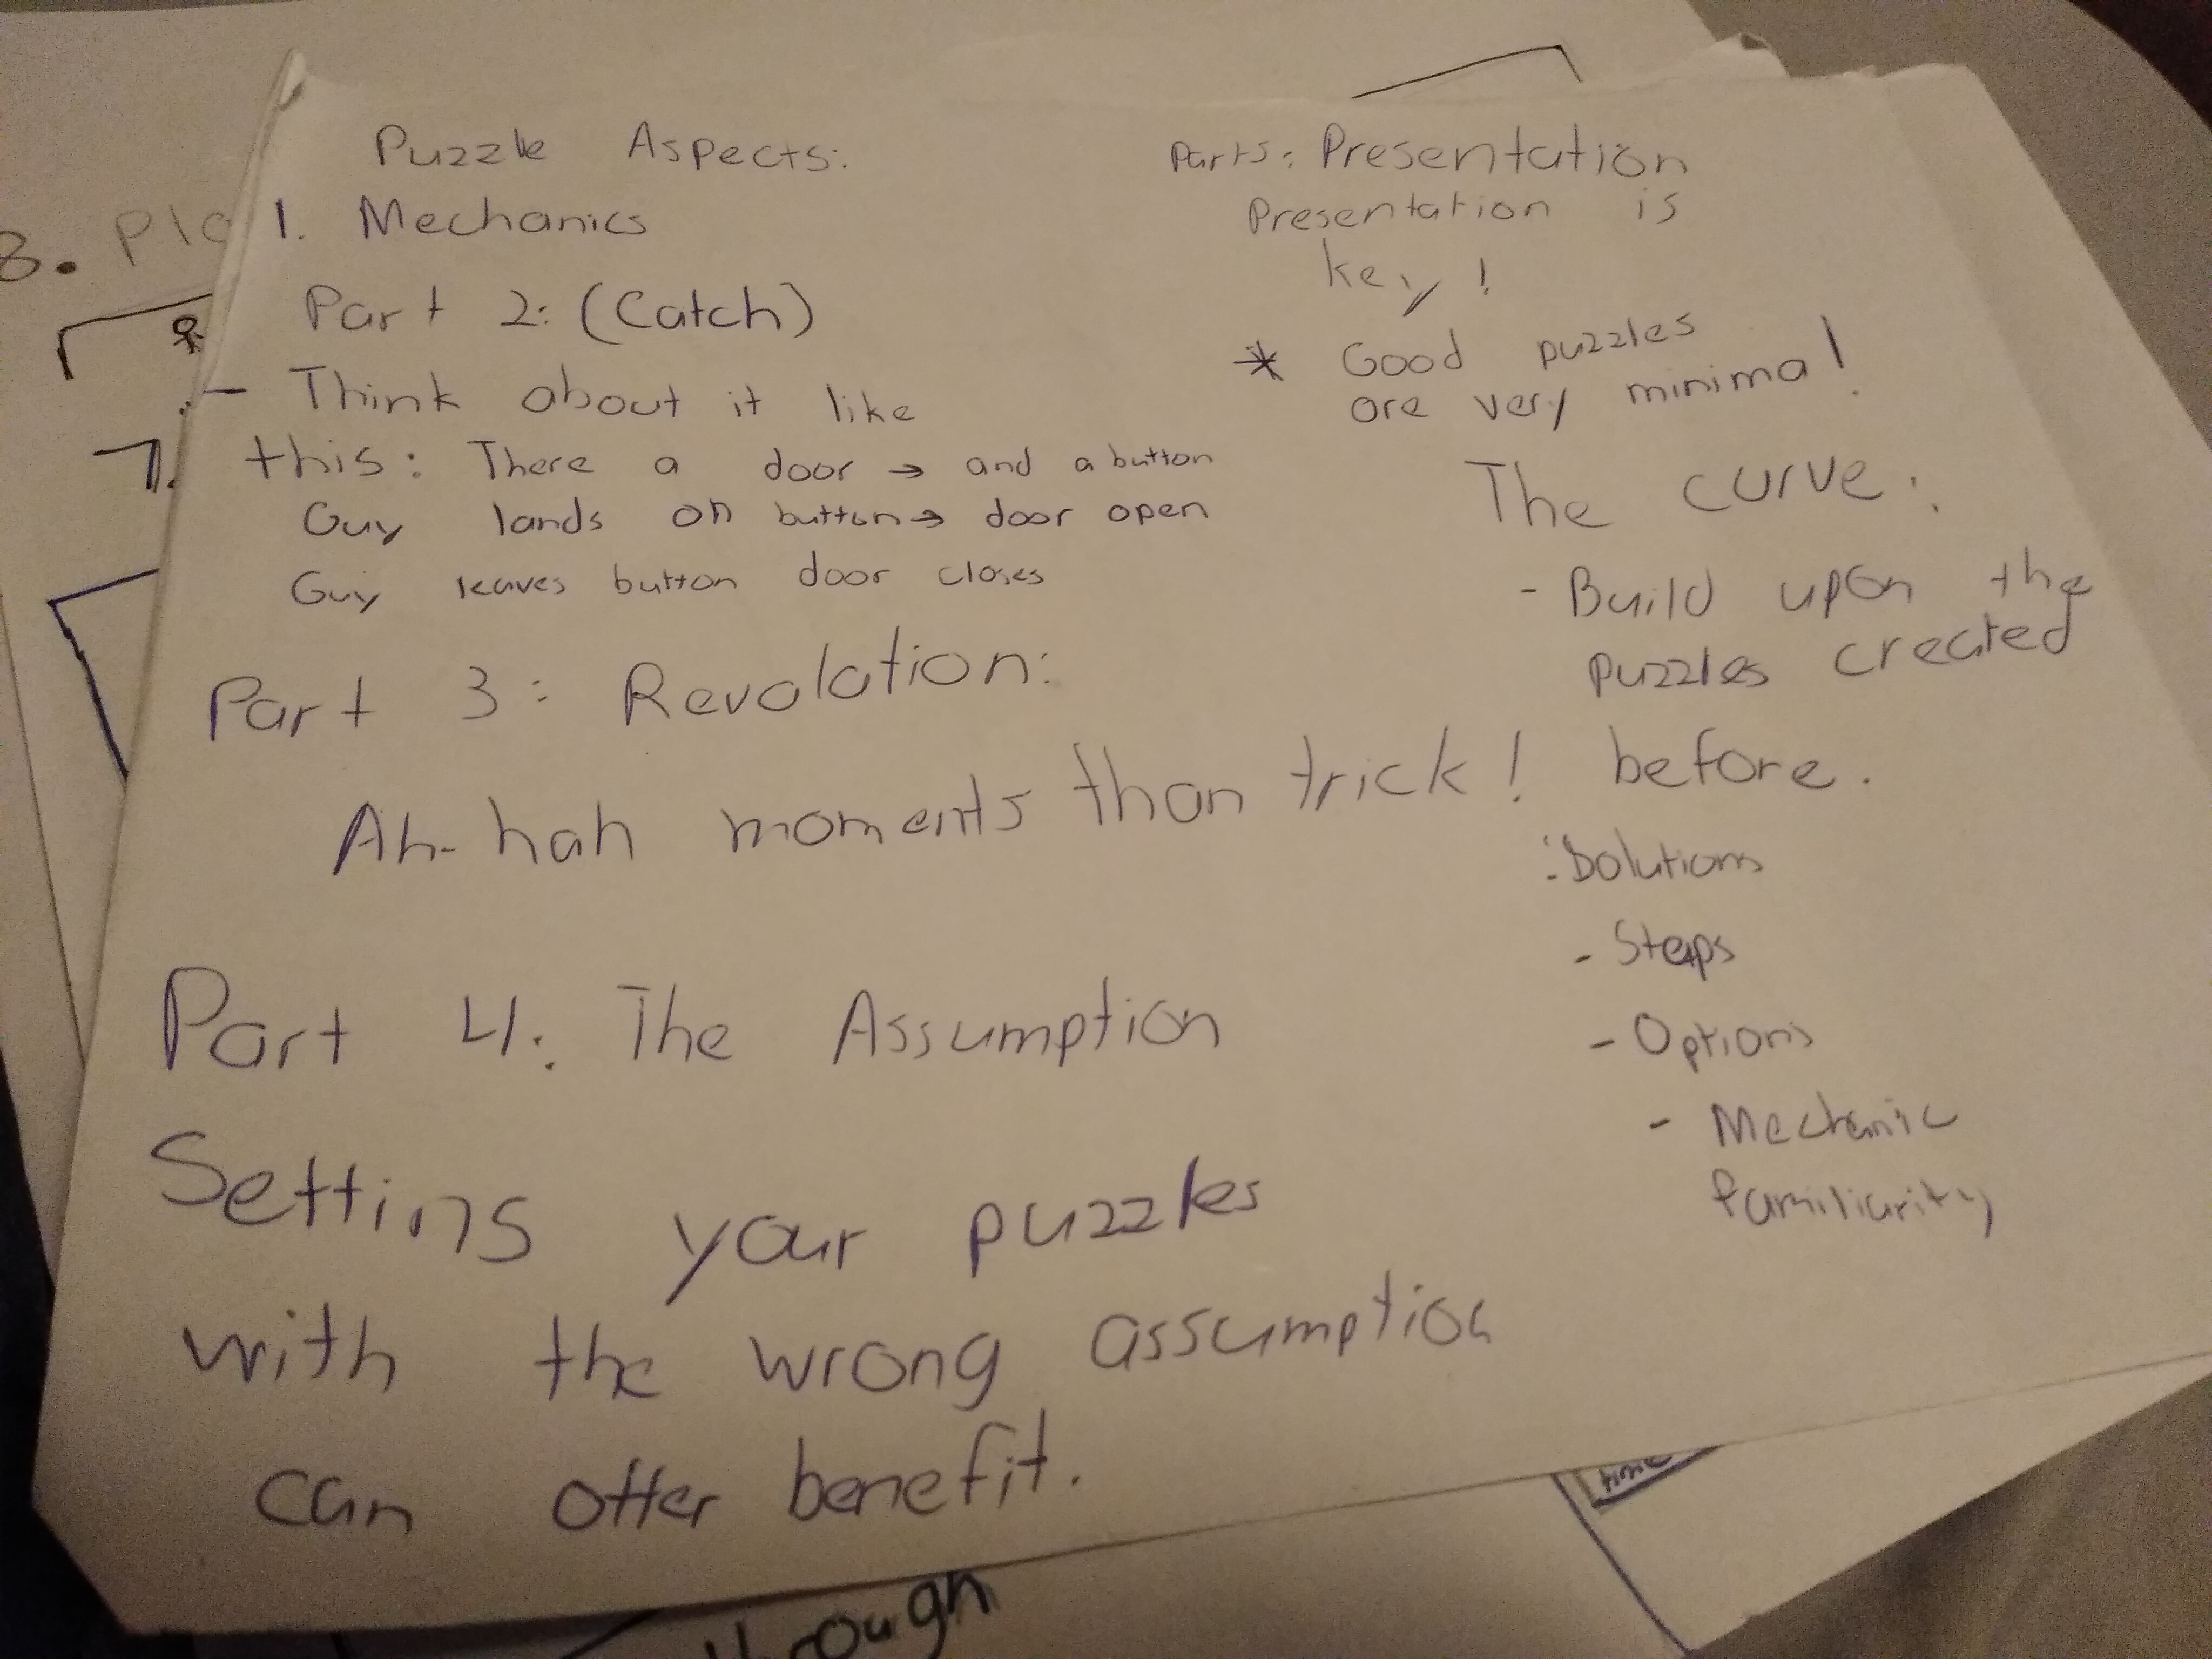 Puzzle Aspects:
1. Mechanics
Part 2: (Catch)
- Think about it like
this: There a door → and a button
Guy lands on button → door open
Guy leaves button door closes
Part 3: Revolation:
Ah-hah moments than trick!
Part 4: The Assumption
Settins your puzzles
with the wrong assumption
can offer benefit.
Part 5: Presentation
Presentation is
key!
* Good puzzles
are very minimal!
The curve:
- Build upon the
puzzles created
before.
- Solutions
- Steps
- Options
- Mechanic
familiarity
8. Pla
7.
time
through